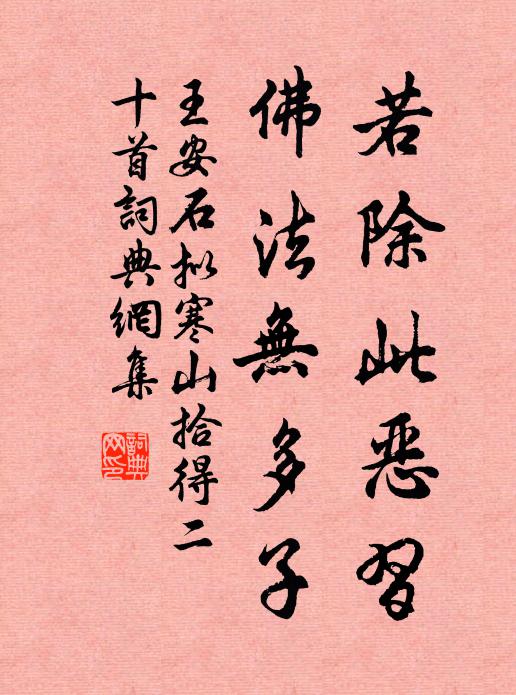 若除此恶習
佛法無多子
王安石拟寒山拾得二
十首詞典網集
詞典
网印